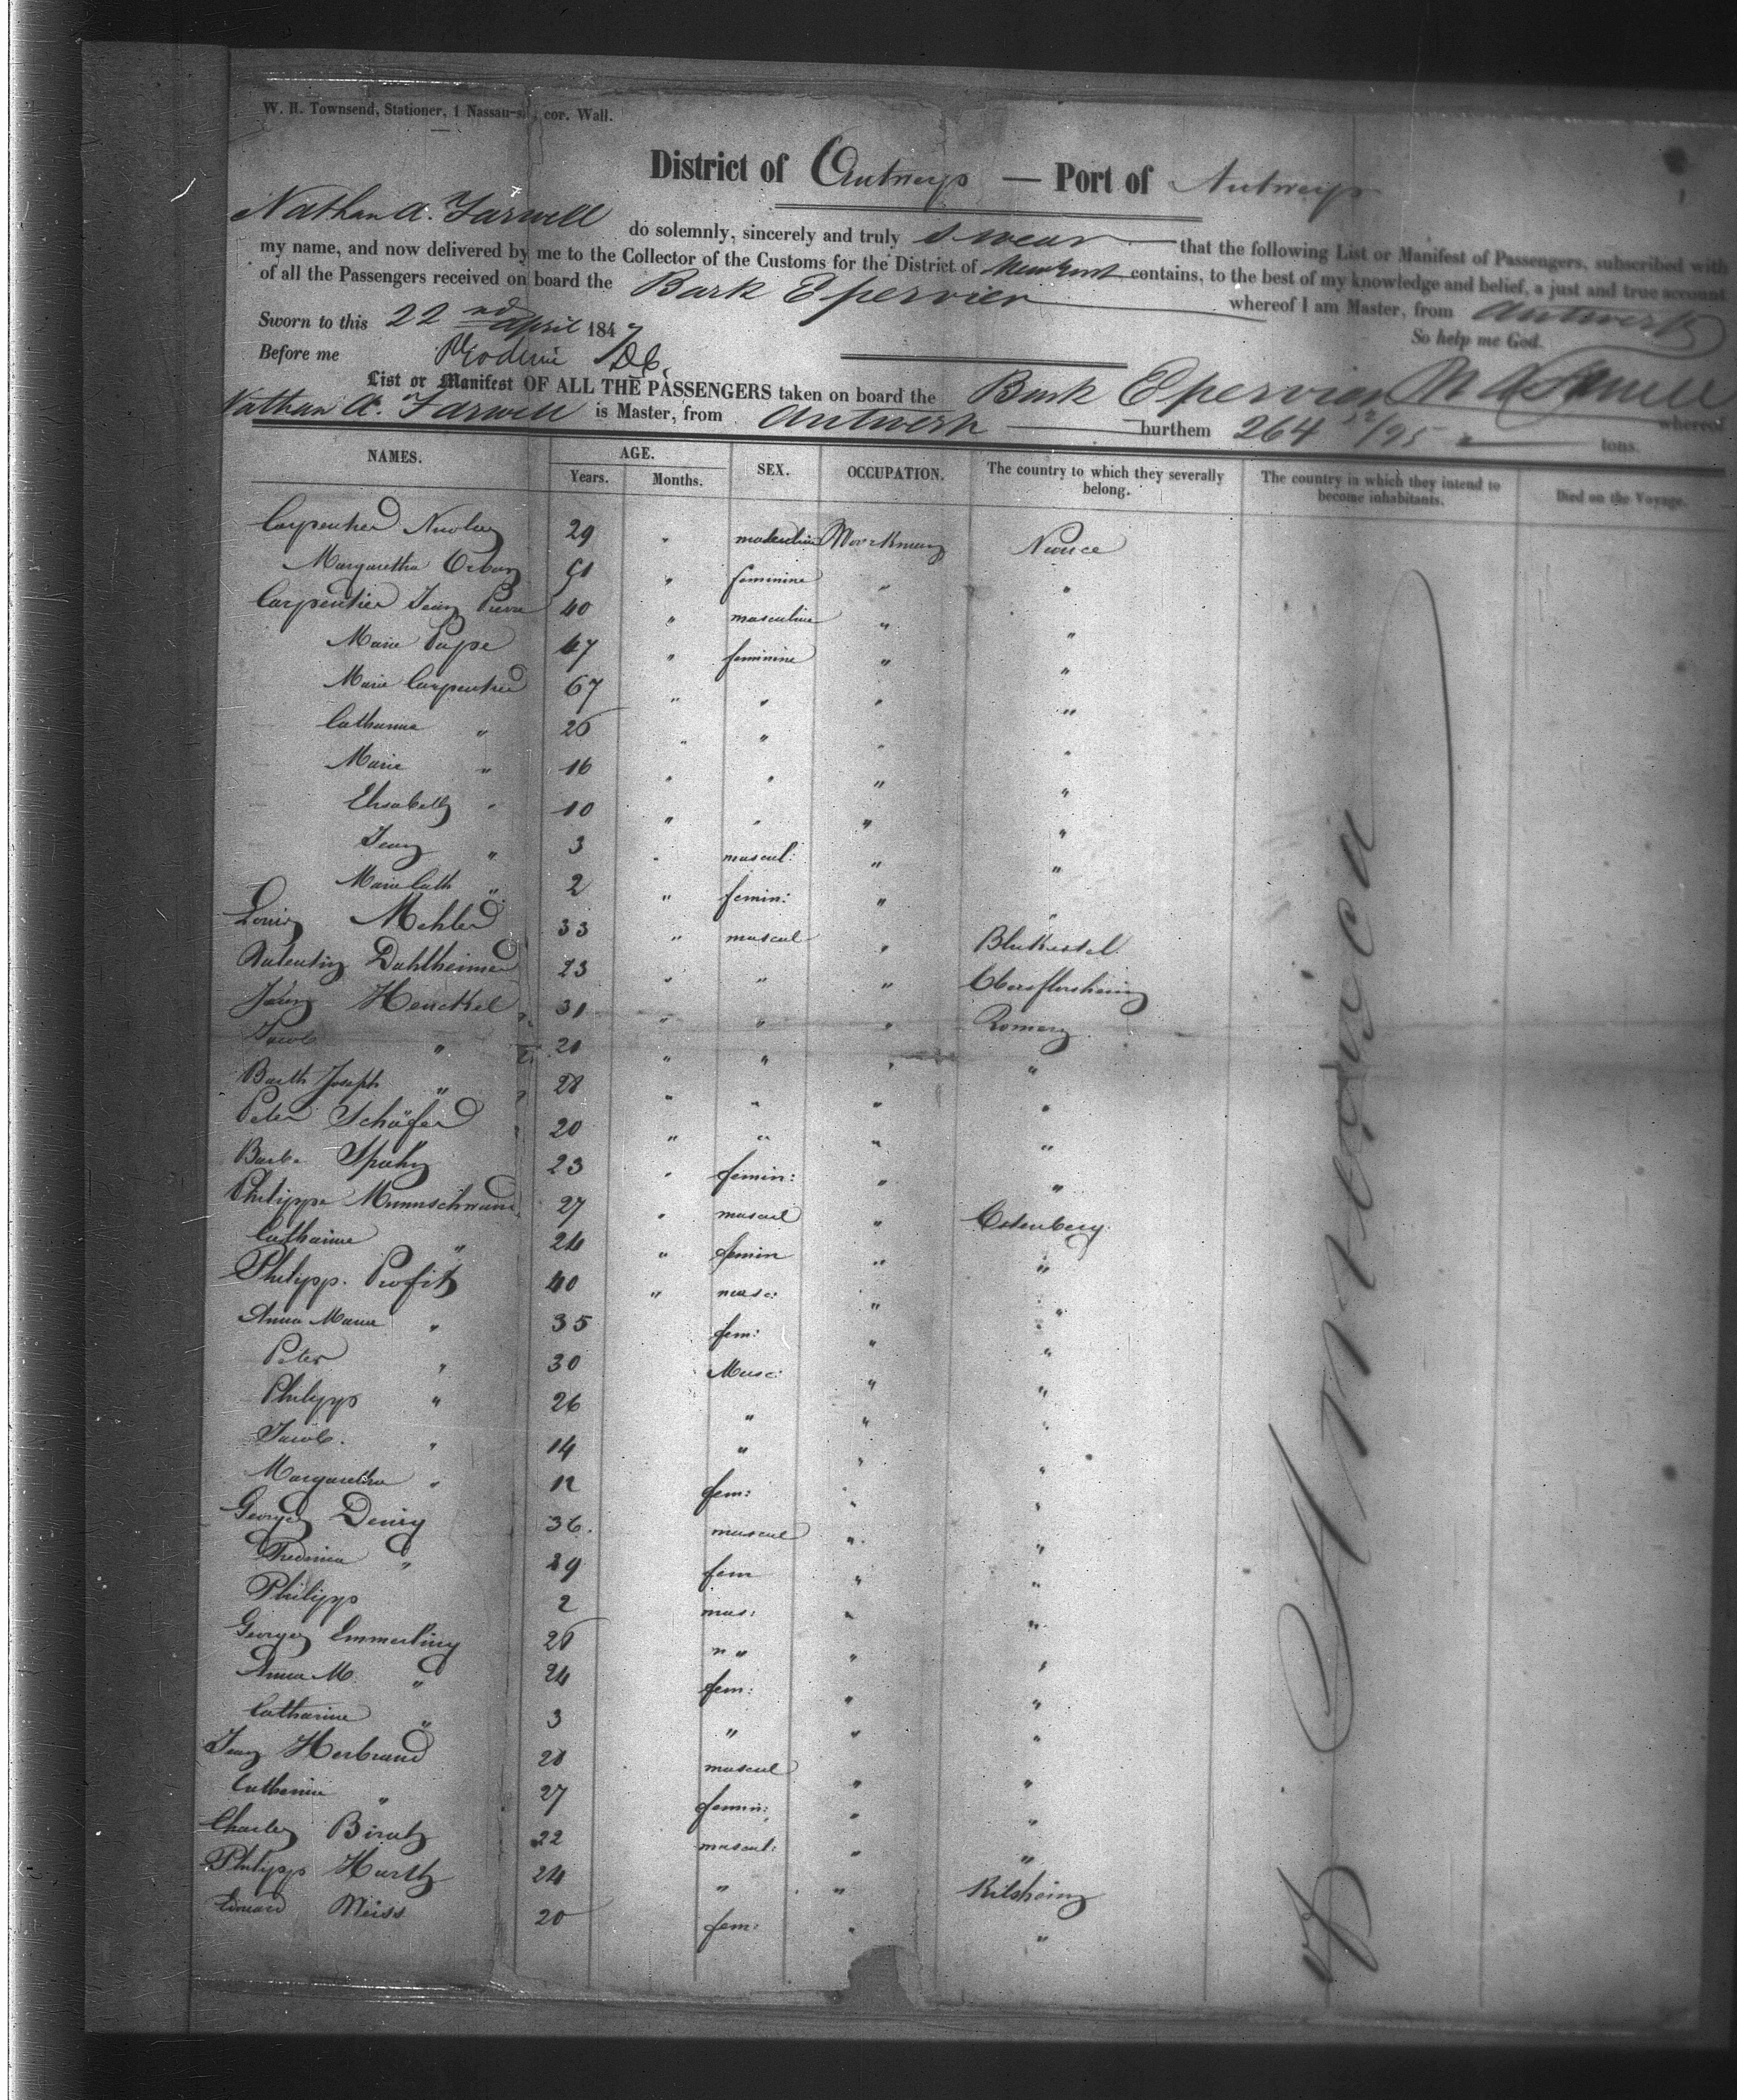 W. H. Townsend, Stationer, 1 Nassau-st, cor. Wall.
District of Antwerp — Port of Antwerp
Nathan A. Farwell do solemnly, sincerely and truly swear that the following List or Manifest of Passengers, subscribed with
my name, and now delivered by me to the Collector of the Customs for the District of New York contains, to the best of my knowledge and belief, a just and true account
of all the Passengers received on board the Bark Epervier whereof I am Master, from Antwerp
Sworn to this 22nd April 1847 So help me God.
Before me
List or Manifest OF ALL THE PASSENGERS taken on board the Bark Epervier N A Farwell whereof
Nathan A. Farwell is Master, from Antwerp burthem 264 /95 tons.
NAMES. AGE. Years. Months. SEX. OCCUPATION. The country to which they severally belong. The country in which they intend to become inhabitants. Died on the Voyage.
Carpentier 29 " masculine Workman
Margaretha " feminine " "
Carpentier Jean Pierre 40 " masculine " "
Marie Pape 47 " feminine " "
Marie Carpentier 67 " " " "
Catharine " 26 " " " "
Marie " 16 " " " "
Elisabeth " 10 " " " "
Jean " 3 " mascul: " "
Marie Cath " 2 " femin: " "
Louis Mehler 33 " mascul "
Valentin Dahlheimer 23 " " "
Jean Henckel 31 " " "
Jacob " 21 " " " "
Barth Joseph " 28 " " " "
Peter Schäfer 20 " " " "
Barb. Spahn 23 " femin: " "
Philippe 27 " mascul "
Catharine " 24 " femin " "
Philipp. Profit 40 " masc: " "
Anna Maria " 35 fem: " "
Peter " 30 Masc: " "
Philipp " 26 " " "
Jacob. " 14 " " "
Margaretha " 12 fem: " "
George 36. mascul " "
" 29 fem " "
Philipp 2 mas: " "
George Emmerling 26 " " "
Anna M. " 24 fem: " "
Catharine " 3 " " "
Jean Herbrand 28 mascul " "
Catherine " 27 femin: " "
Charles 22 mascul: " "
Philipp Hurth 24 " "
Weiss 20 fem: " "
of America